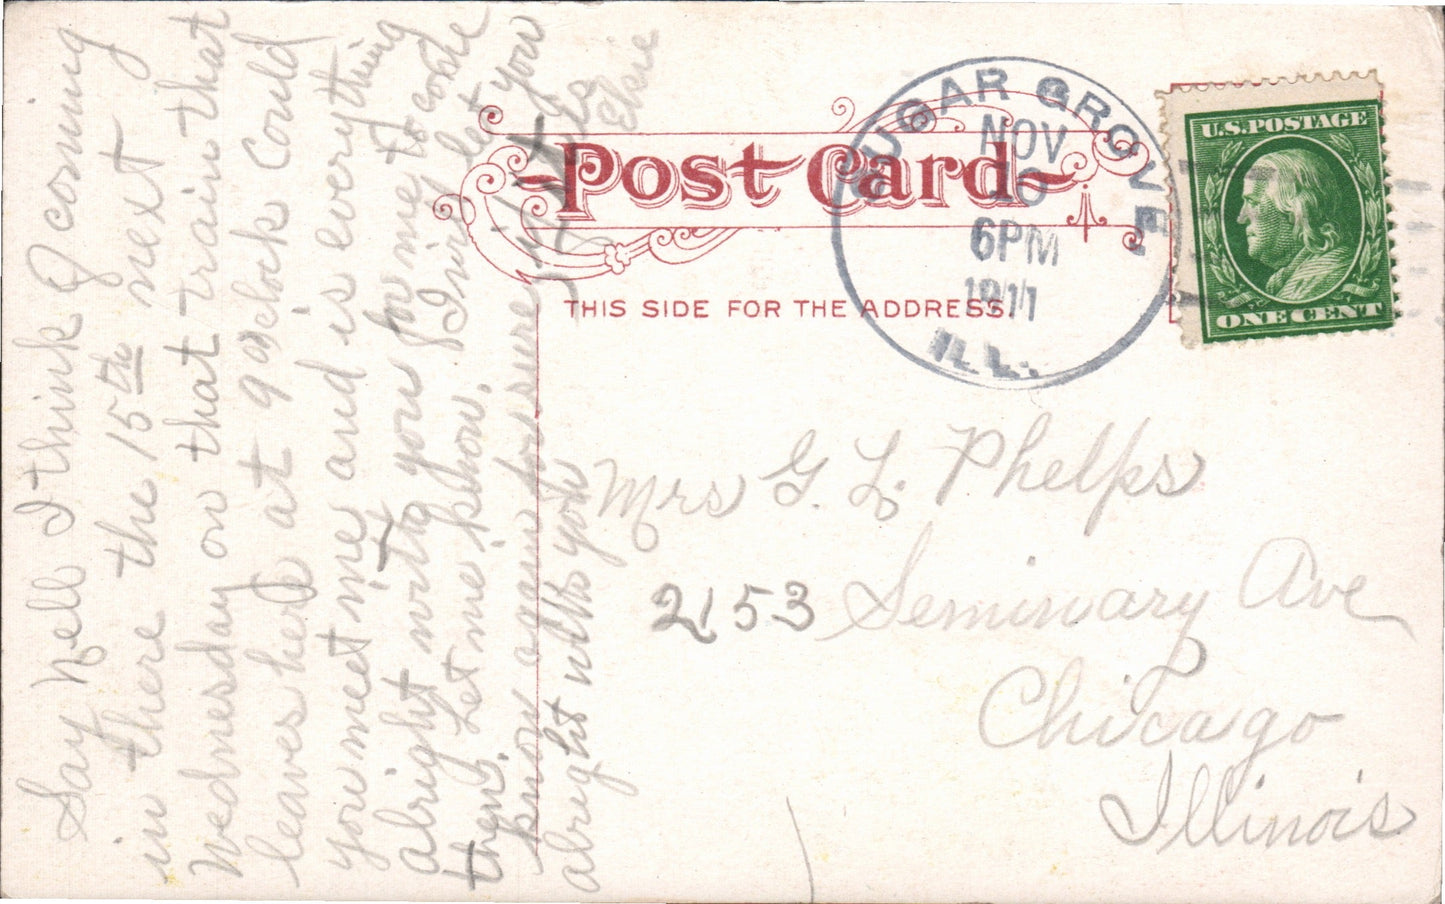 Say Nell I think of coming
in there the 15th next
Wednesday on that train that
leaves here at 9 o'clock Could
you meet me and is everything
alright with you for me to come
then. Let me know. I'll let you
know again for sure if it is
alright with you
Elsie
POST CARD
THIS SIDE FOR THE ADDRESS.
SUGAR GROVE
NOV
10
6PM
1911
ILL.
U.S. POSTAGE
ONE CENT
Mrs G. L. Phelps
2153 Seminary Ave
Chicago
Illinois